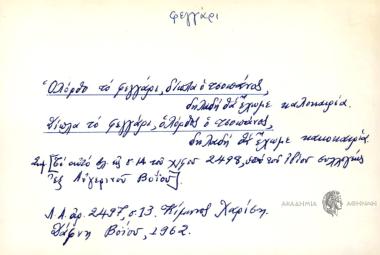 φεγγάρι
Ὁλόρθο τὸ φεγγάρι, δίπλα ὁ τσοπάνος,
δηλαδὴ θὰ ἔχωμε καλοκαιρία.
Δίπλα τὸ φεγγάρι, ὁλόρθος ὁ τσοπάνος,
δηλαδὴ θὰ ἔχωμε κακοκαιρία.
[Τὸ αὐτὸ ἐν σ. 14 τοῦ χ/φου 2498, ὑπὸ τοῦ ἰδίου συλλογέως
ἐξ Αὐγερινοῦ Βοΐου].
Λ.Α. ἀρ. 2497, σ. 13. Κίμωνος Χαρίση,
Δάφνη Βοΐου, 1962.
ΑΚΑΔΗΜΙΑ ΑΘΗΝΩΝ